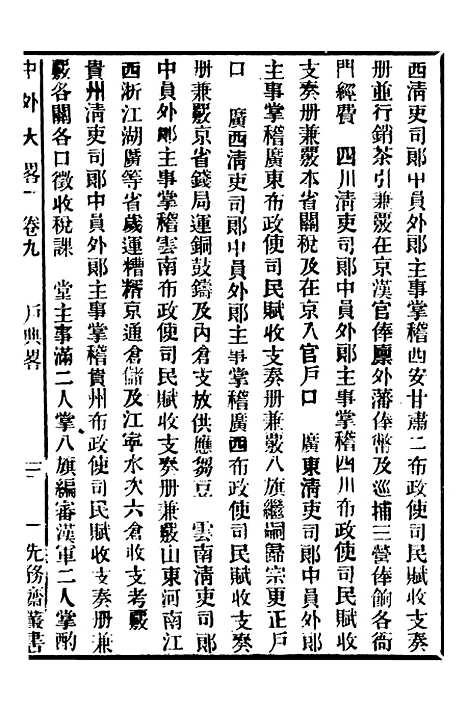 西清吏司郎中員外郎主事掌稽西安甘肅二布政使司民賦收支奏
册並行銷茶引兼覈在京漢官俸廪外藩俸幣及巡捕三營俸餉各衙
門經費　四川清吏司郎中員外郎主事掌稽四川布政使司民賦收
支奏册兼覈本省關稅及在京入官戶口　廣東清吏司郎中員外郎
主事掌稽廣東布政使司民賦收支奏册兼覈八旗繼嗣歸宗更正戶
口　廣西清吏司郎中員外郎主事掌稽廣西布政使司民賦收支奏
册兼覈京省錢局運銅鼓鑄及內倉支放供應芻豆　雲南清吏司郎
中員外郎主事掌稽雲南布政使司民賦收支奏册兼覈山東河南江
西浙江湖廣等省歲運糟糈京通倉儲及江寧水次六倉收支考覈
貴州清吏司郎中員外郎主事掌稽貴州布政使司民賦收支奏册兼
覈各關各口徵收稅課　堂主事滿二人掌八旗編審漢軍二人掌酌
中外大畧　卷九　戶典畧　三　先務齋叢書